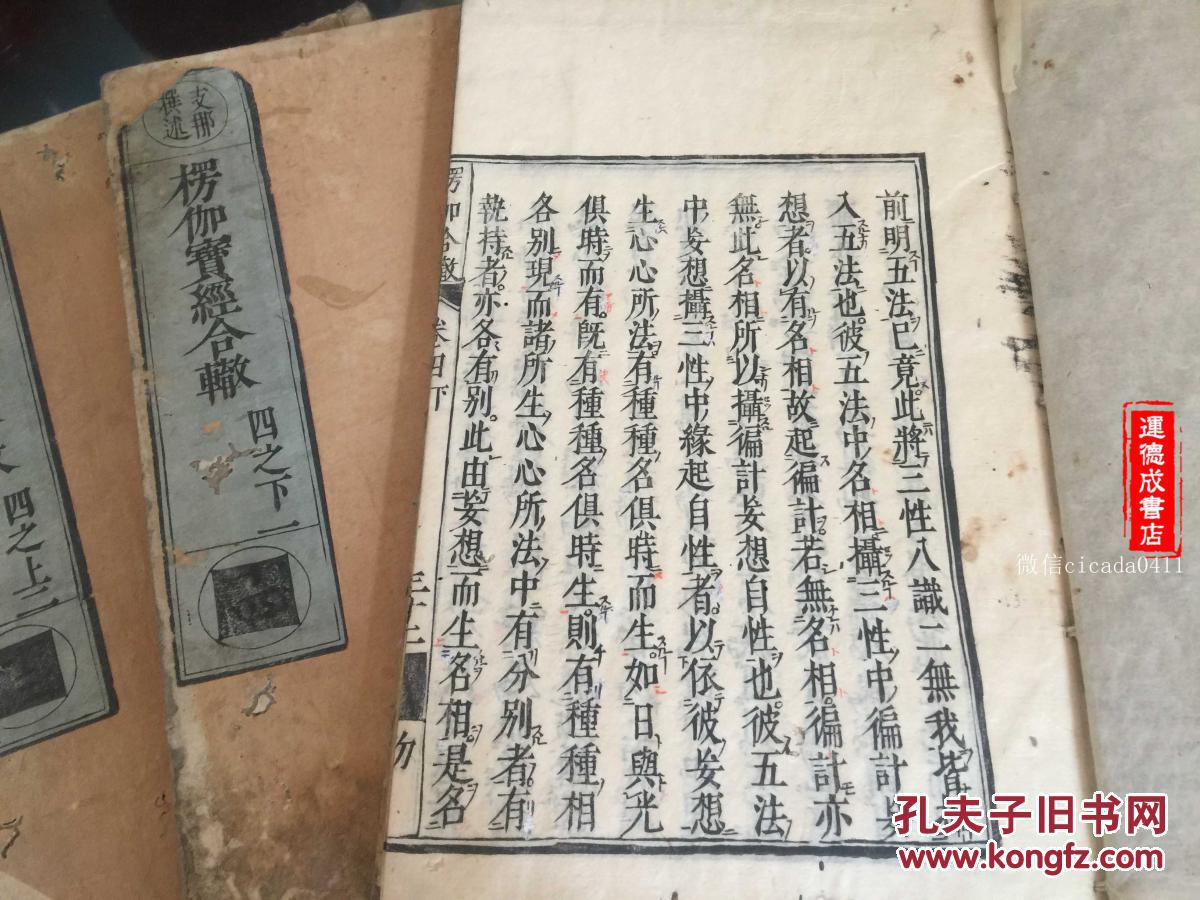 前明五法已竟此將三性八識二無我皆
入五法也彼五法中名相攝三性中徧計妄
想者以有名相故起徧計若無名相徧計亦
無此名相所以攝徧計妄想自性也彼五法
中妄想攝三性中緣起自性者以依彼妄想
生心心所法有種種名俱時而生如日與光
俱時而有旣有種種名俱時生則有種種相
各別現而諸所生心心所法中有分別者有
執持者亦各有別此由妄想而生名相是名
楞伽合轍 卷四下
支那
撰述
楞伽寶經合轍 四之下 一
四之上 二
運德成書店
微信cicada0411
孔夫子旧书网
www.kongfz.com